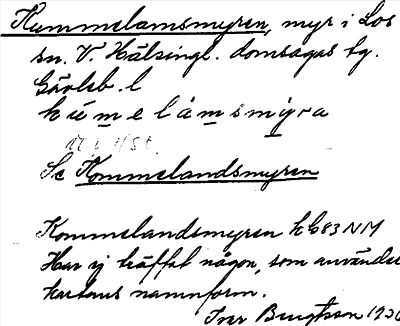 Kummelamsmyren, myr i Los
sn. V. Hälsingl. domsagas tg.
Gävleb. l
kúmelàmsmỳra
Se Kommelandsmyren
Kommelandsmyren kb 83 NM
Har ej träffat någon, som använder
kartans namnform.
Ivar Bengtsson 1936